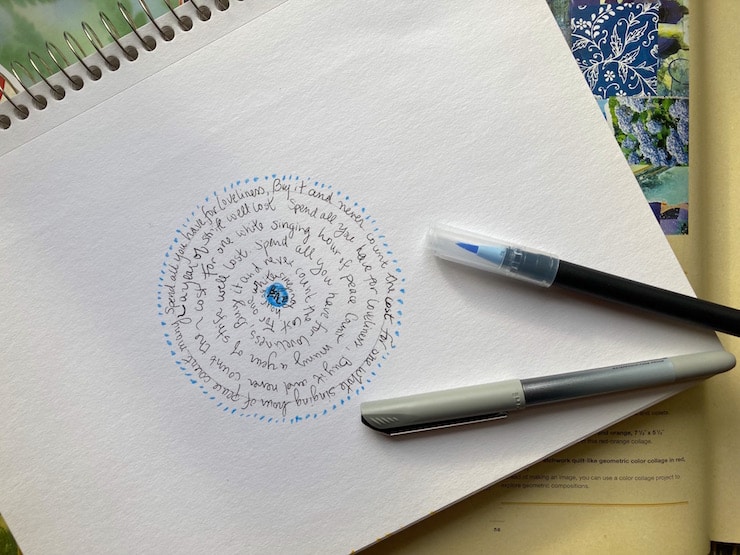 Spend all you have for loveliness, Buy it and never count the cost for one white singing hour of peace count many
a year of strife well lost Spend all you have for loveliness, Buy it and never count the
cost for one white singing hour of peace Count many a year of strife
well lost Spend all you have for loveliness Buy it and never count the cost
for one white singing
and orange, 7 ½" x 5 ½"
red-orange collage.
quilt like geometric color collage in red.
of making an image, you can use a color collage project to
geometric compositions.